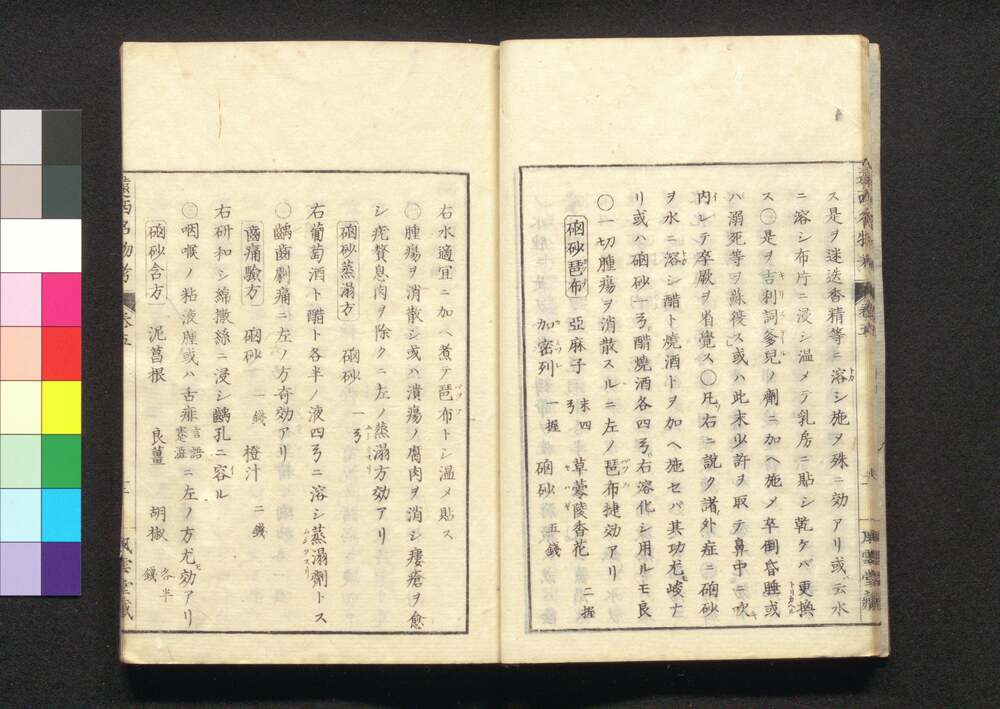 ス是ヲ迷迭香精等ニ溶シ施メ殊ニ効アリ或云水
ニ溶シ布片ニ浸シ温メテ乳房ニ貼シ乾ケバ更換
ス○是ヲ吉利詞爹兒ノ劑ニ加ヘ施メ卒倒昏睡或
ハ溺死等ヲ蘇後ス或ハ此末少許ヲ取テ鼻中ニ吹
内レテ卒厥ヲ省覺ス○凡右ニ説ク諸外症ニ硇砂
ヲ水ニ溶シ醋ト燒酒トヲ加ヘ施セバ其功尤峻ナ
リ或ハ硇砂一弓醋燒酒各四弓右溶化シ用ルモ良
○一切腫瘍ヲ消散スルニ左ノ琶布捷効アリ
硇砂琶布 亞麻子末四弓 草蒙陵香花二握
加密列一握 硇砂五錢
右水適宜ニ加ヘ煮テ琶布トシ温メ貼ス
○腫瘍ヲ消散シ或ハ潰瘍ノ腐肉ヲ消シ瘻瘡ヲ愈
シ疣贅息肉ヲ除クニ左ノ蒸溻方効アリ
硇砂蒸溻方 硇砂一弓
右葡萄酒ト醋ト各半ノ液四弓ニ溶シ蒸溻劑トス
○齲齒劇痛ニ左ノ方奇効アリ
齒痛驗方 硇砂一錢 橙汁二錢
右研和シ綿撒絲ニ浸シ齲孔ニ容ル
○咽喉ノ粘液腫或ハ舌痱言語蹇澁ニ左ノ方尤効アリ
硇砂含方 泥菖根 良薑 胡椒各半錢
遠西名物考
卷五
風雲堂藏